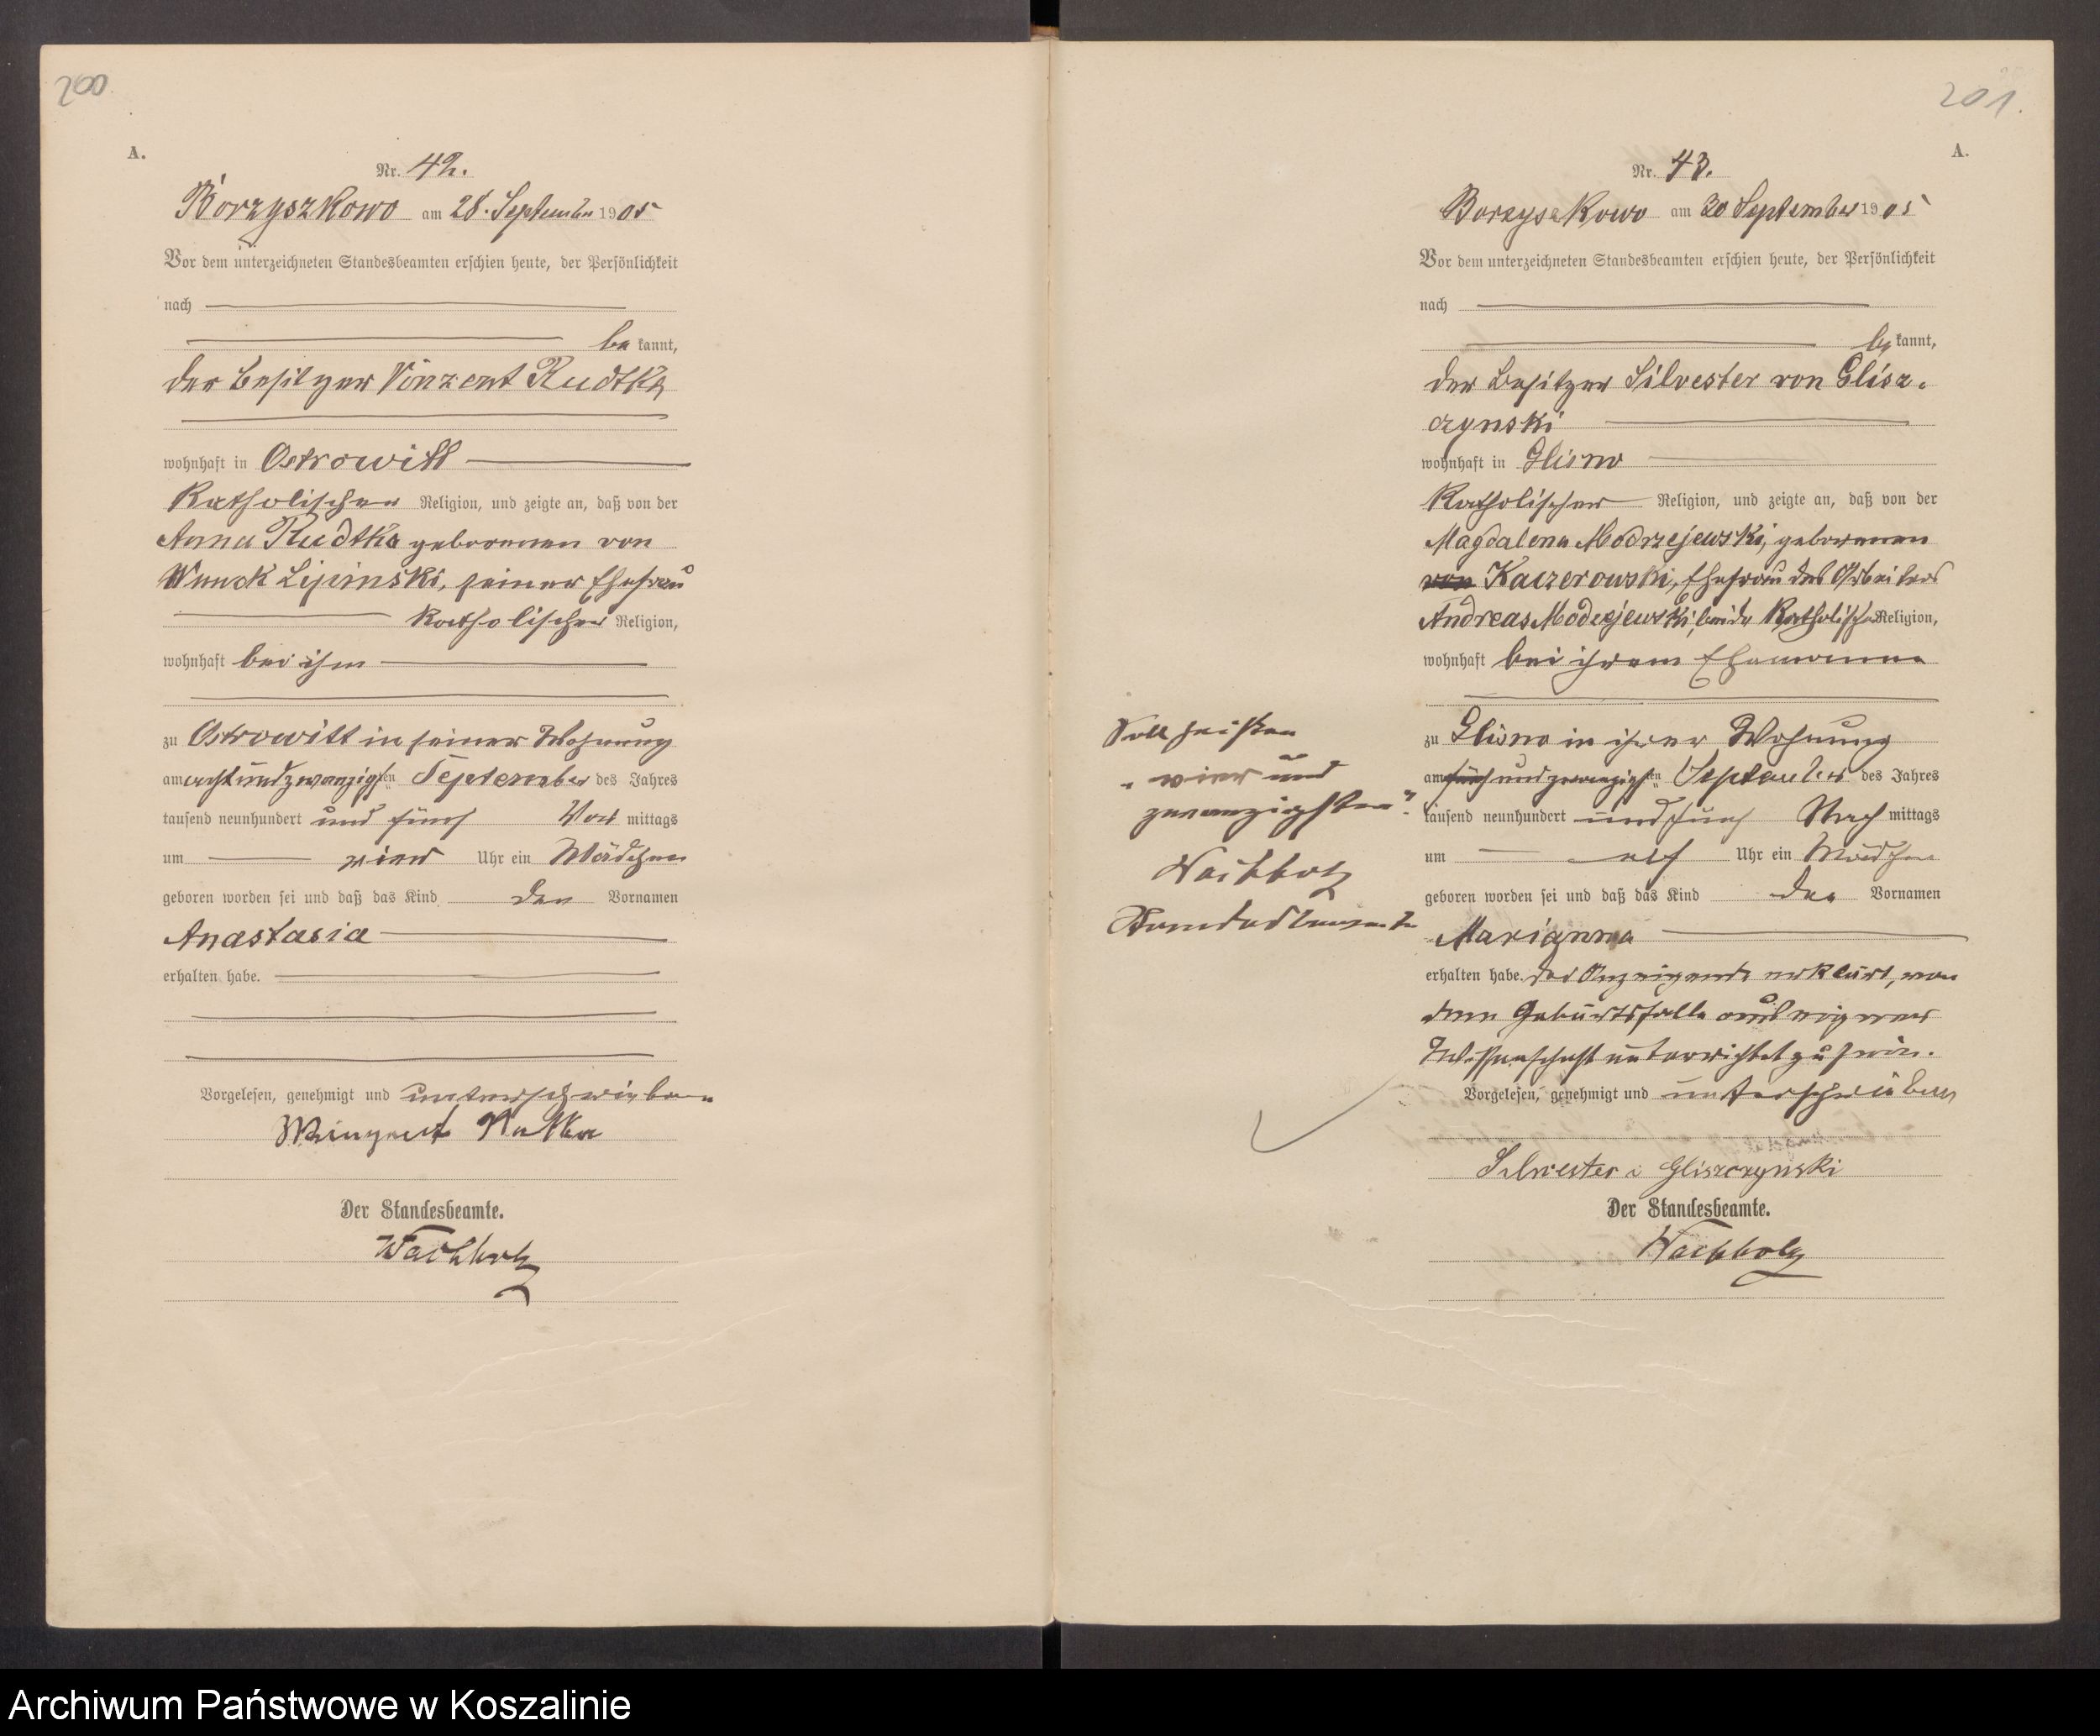 200
A.
Nr. 42.
Borzyszkowo am 28. September 1905
Vor dem unterzeichneten Standesbeamten erschien heute, der Persönlichkeit
nach
be kannt,
der Besitzer Vinzent Rudtka
wohnhaft in Ostrowitt
Katholischer Religion, und zeigte an, daß von der
Anna Rudtka geborenen von
Wnuck Lipinski, seiner Ehefrau
Katholischer Religion,
wohnhaft bei ihm
zu Ostrowitt in seiner Wohnung
am achtundzwanzigsten September des Jahres
tausend neunhundert und fünf Vor mittags
um vier Uhr ein Mädchen
geboren worden sei und daß das Kind den Vornamen
Anastasia
erhalten habe.
Vorgelesen, genehmigt und unterschrieben
Rutka
Der Standesbeamte.
Wachholz
201.
A.
Nr. 43.
Borzyszkowo am 30 September 1905
Vor dem unterzeichneten Standesbeamten erschien heute, der Persönlichkeit
nach
be kannt,
der Besitzer Silvester von Glisz-
czynski
wohnhaft in Glisno
Katholischer Religion, und zeigte an, daß von der
Magdalena Modrzejewski, geborenen
von Kaczerowski, Ehefrau des Arbeiters
Andreas Modrzejewski, beide Katholischer Religion,
wohnhaft bei ihrem Ehemanne
zu Glisno in ihrer Wohnung
am fünfundzwanzigsten September des Jahres
tausend neunhundert und fünf Nach mittags
um elf Uhr ein Mädchen
geboren worden sei und daß das Kind den Vornamen
Marianna
erhalten habe. Der Anzeigende erklärt, von
dem Geburtsfalle aus eigener
Wissenschaft unterrichtet zu sein.
Vorgelesen, genehmigt und unterschrieben
Silwester v Gliszczynski
Der Standesbeamte.
Wachholz
Soll heißen
"vier und
zwanzigsten".
Wachholz
Standesbeamte
Archiwum Państwowe w Koszalinie